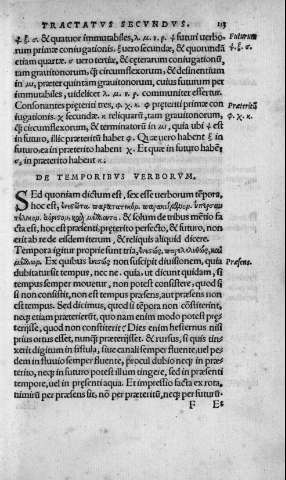 TRACTATVS SECVNDVS. 113
φ. ξ. σ. & quatuor immutabiles, λ. μ. ν. ρ. φ futuri verbo-
rum primæ coniugationis. ξ uero secundæ, & quorundā
etiam quartæ. σ uero tertiæ, & cęterarum coniugationū,
tam grauitonorum, q̄ circumflexorum, & desinentium
in μι, præter quintam coniugationem, cuius futurum per
immutabiles, uidelicet λ. μ. ν. ρ. communiter effertur.
Consonantes pręteriti tres, φ. χ. κ. φ pręteriti primæ con
iugationis. χ secundæ. κ reliquarū, tam grauitonorum,
q̄ circumflexorum, & terminatorū in μι, quia ubi ψ est
in futuro, illic præteritū habet φ. Quæ uero habent ξ in
futuro, ea in præterito habent χ. Et quæ in futuro habēt
σ, in præterito habent κ.
Futurum
φ. ξ. σ.
Præteritū
φ. χ. κ.
DE TEMPORIBVS VERBORVM.
SEd quoniam dictum est, sex esse uerborum tēpora,
hoc est,
& solum de tribus mētio fa
cta est, hoc est præsenti, pręterito perfecto, & futuro, non
erit ab re de eisdem iterum, & reliquis aliquid dicere.
Tempora igitur proprie sunt tria, ἐνεστώς, παρεληλυθὼς, καὶ
μέλλων. Ex quibus ἐνεστὼς non suscipit diuisionem, quia
dubitatur sit tempus, nec ne. quia, ut dicunt quidam, si
tempus semper mouetur, non potest consistere, quod si
si non consistit, non est tempus præsens, aut præsens non
est tempus. Sed dicimus, quod si tēpora non cōstiterint,
neq; etiam præterierūt, quo nam enim modo potest præ-
terijsse, quod non constiterit? Dies enim hesternus nisi
prius ortus esset, nunq̄ præterijsset. & rursus, si quis tin-
xerit digitum in fistula, siue canali semper fluente, uel pe
dem in fluuio semper fluente, procul dubio neq; in præ-
terito, neq; in futuro potest illum tingere, sed in præsenti
tempore, uel in pręsenti aqua. Et impressio facta ex rota,
nimirū per præsens fit. nō per præteritū, neq; per futurū.
Præsens.
F Et